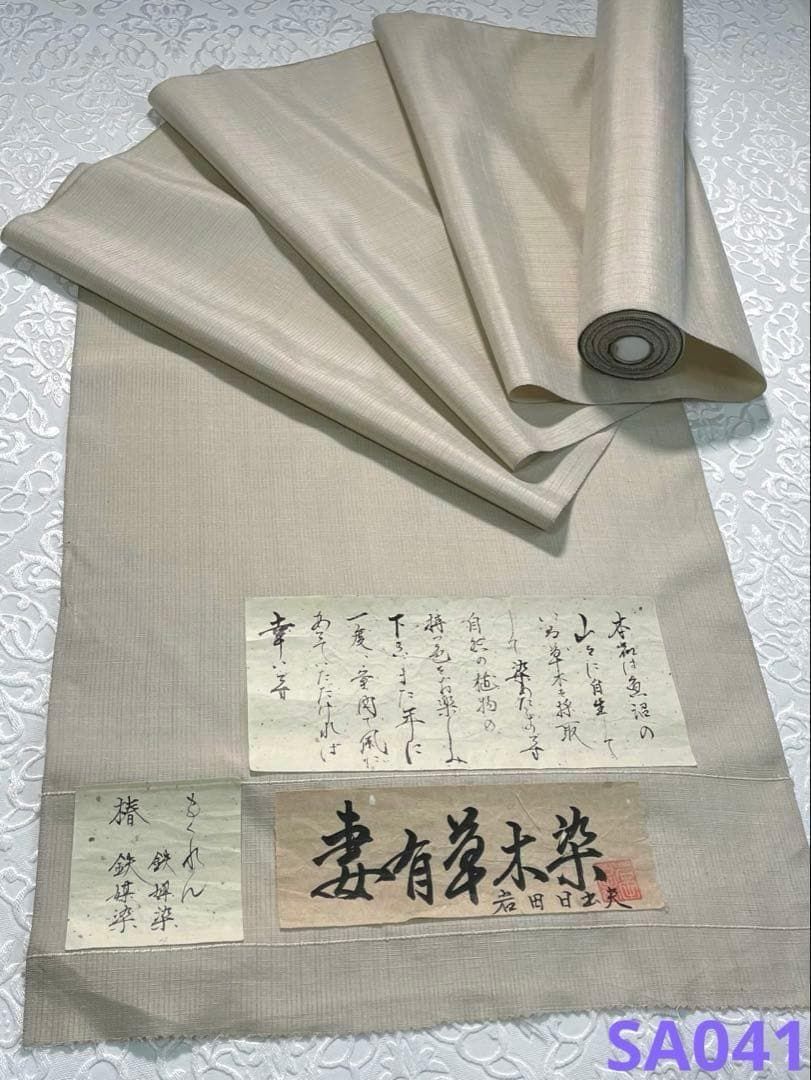 本品は魚沼の
山々に自生して
いる草木を採取
して染めたものです
自然の植物の
持つ色をお楽しみ
下さいまた年に
一度は室内で風に
あてていただければ
幸いです
もくれん
鉄媒染
椿
鉄媒染
妻有草木染
岩田日出夫
SA041